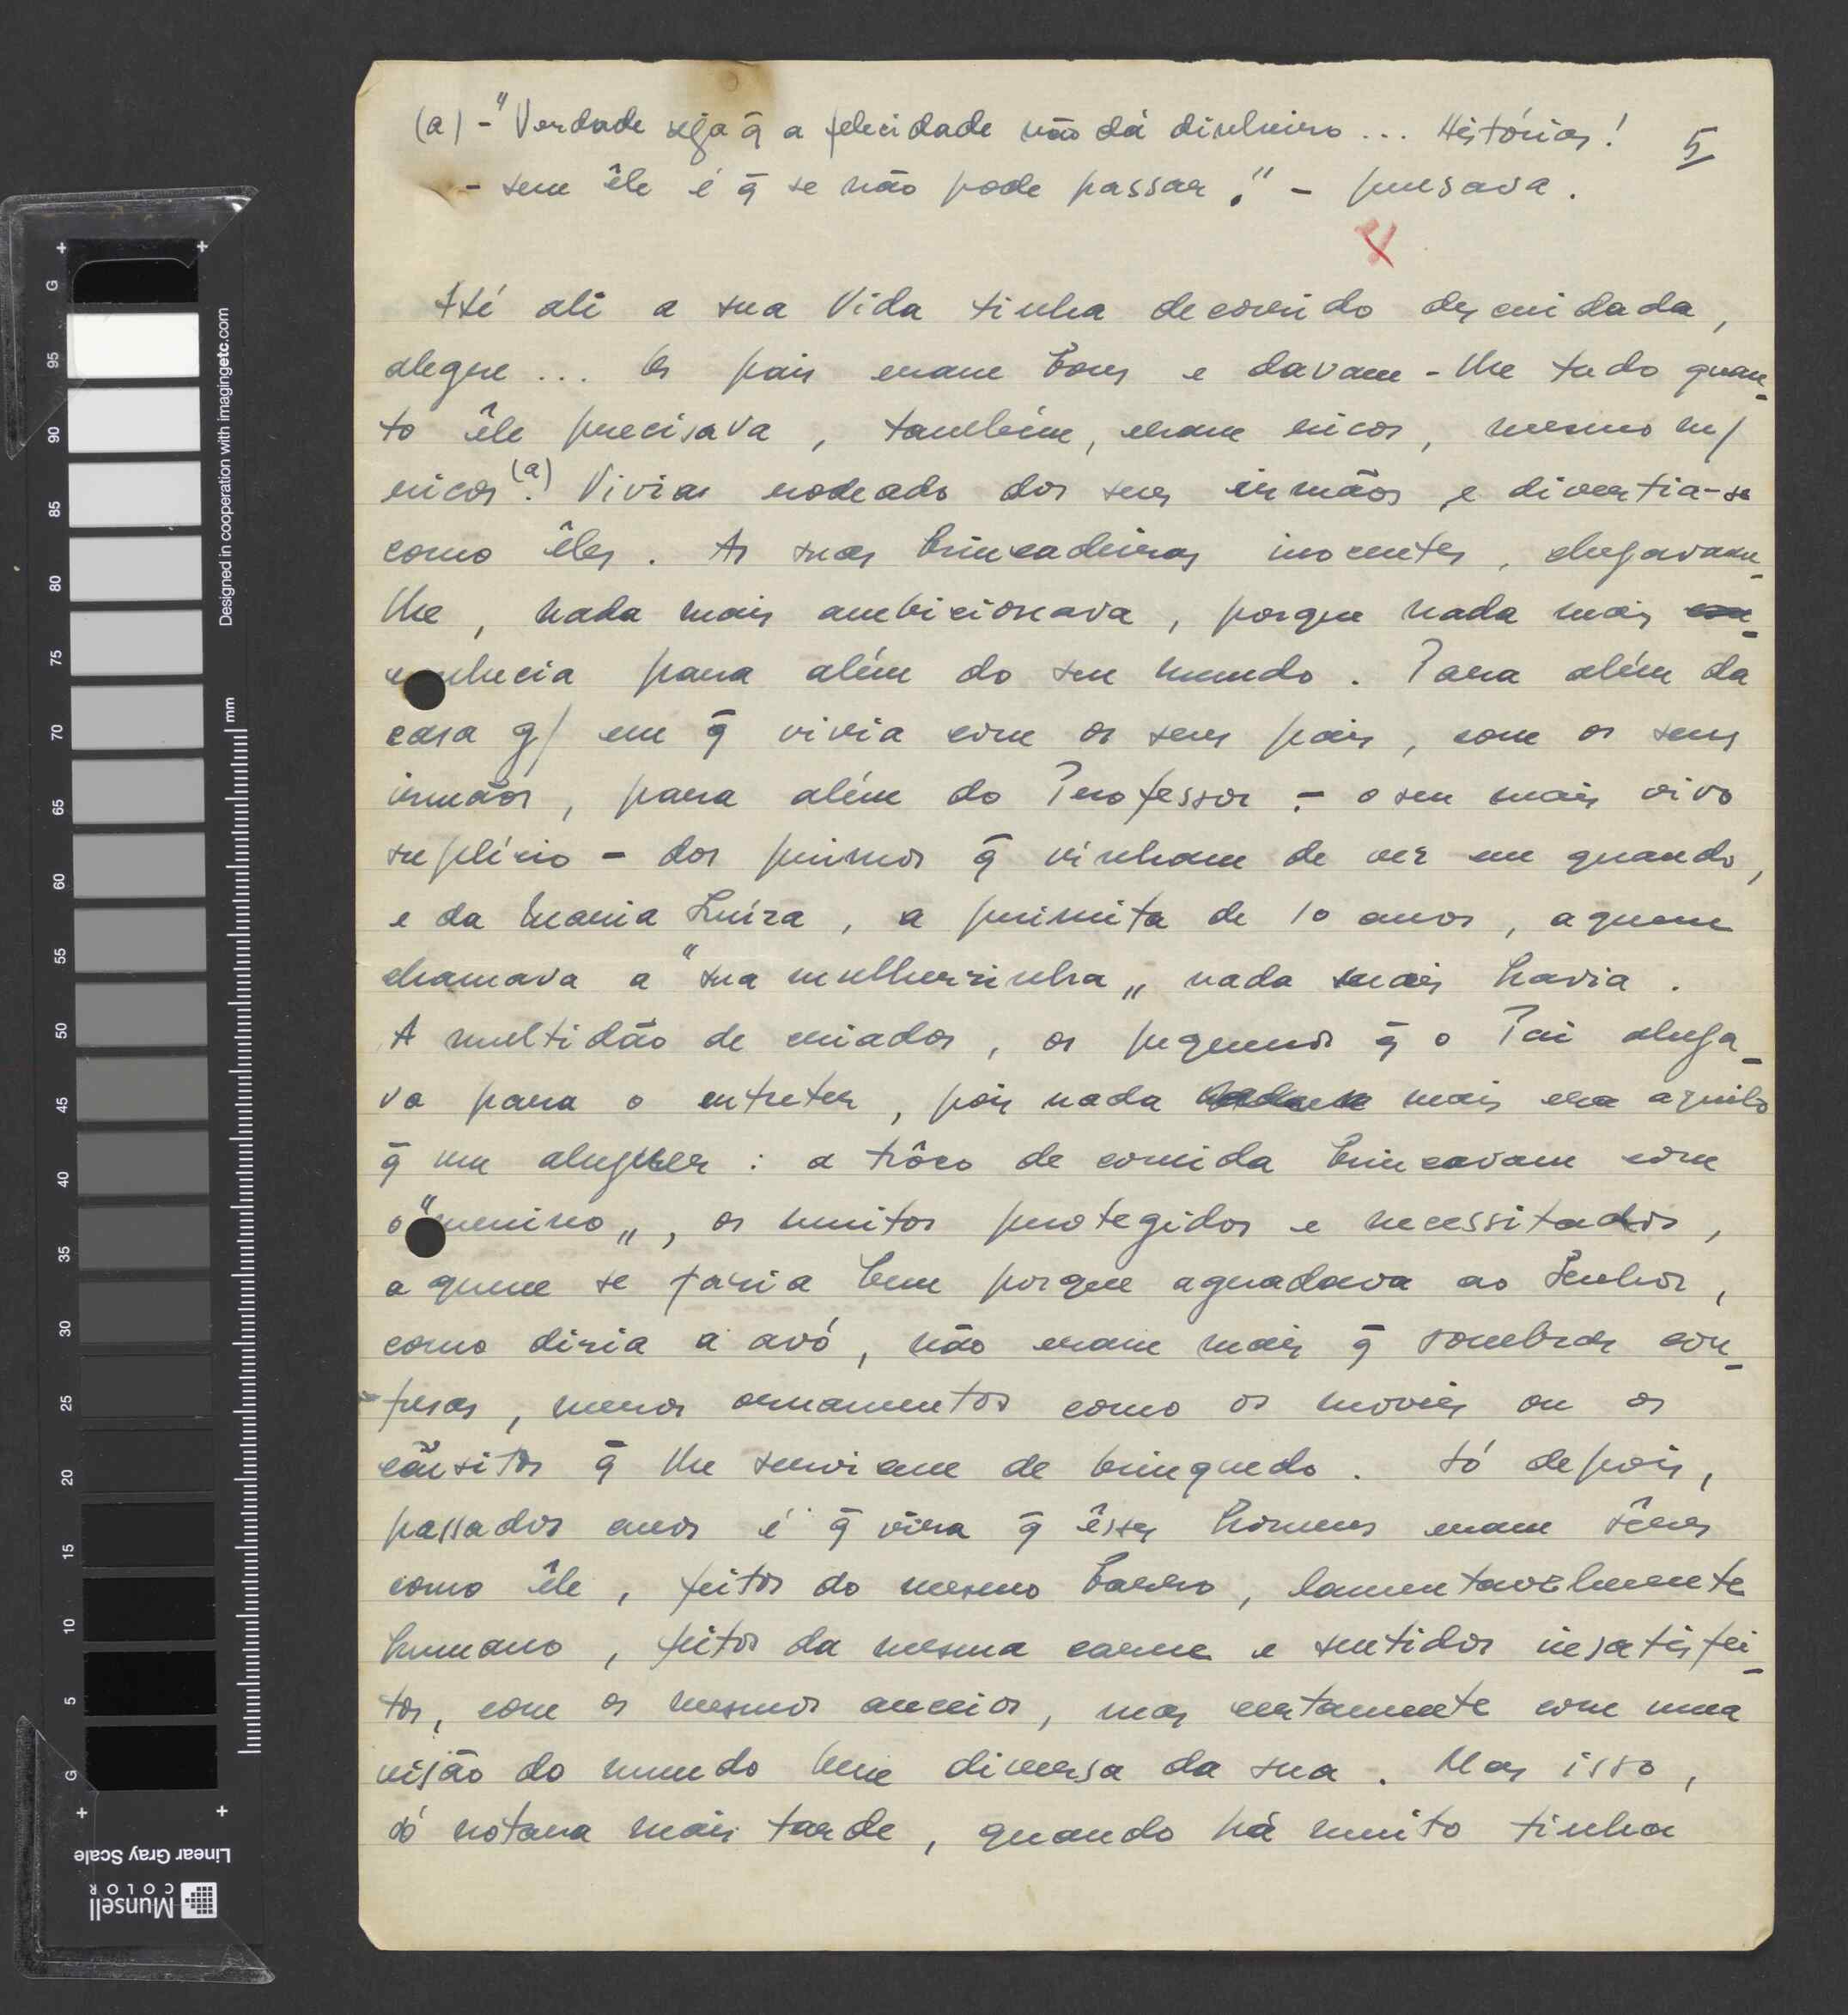 (a) - "Verdade seja q̄ a felicidade não dá dinheiro... Histórias!
5
- sem êle é q̄ se não pode passar." - pensava.
Até ali a sua Vida tinha decorrido descuidada,
alegre... Os pais eram bons e davam-lhe tudo quan-
to êle precisava, também, eram ricos, mesmo m/
ricos (a)! Vivia rodeado dos seus irmãos e divertia-se
como êles. As suas brincadeiras inocentes, chegavam-
lhe, nada mais ambicionava, porque nada mais co-
conhecia para além do seu mundo. Para além da
casa g/ em q̄ vivia com os seus pais, com os seus
irmãos, para além do Professor - o seu mais vivo
suplício - dos primos q̄ vinham de vez em quando,
e da Maria Luíza, a primita de 10 anos, a quem
chamava a "sua mulherzinha„ nada mais havia.
A multidão de criados, os pequenos q̄ o Pai aluga-
va para o entreter, pois nada mais era aquilo
q̄ um aluguer: a trôco de comida brincavam com
o "menino„, os muitos protegidos e necessitados,
a quem se fazia bem porque agradava ao Senhor,
como dizia a avó, não eram mais q̄ sombras con-
fusas, meros ornamentos como os moveis ou os
cãusitos q̄ lhe serviam de brinquedo. Só depois,
passados anos é q̄ vira q̄ êsses homens eram sêres
como êle, feitos do mesmo barro, lamentavelmente
humano, feitos da mesma carne e sentidos insatisfei-
tos, com os mesmos anceios, mas certamente com uma
visão do mundo bem diversa da sua. Mas isso,
só notara mais tarde, quando há muito tinha
G
95
90
85
80
75
70
65
60
55
50
45
40
35
30
25
20
15
10
5
G
mm
Designed in cooperation with imagingetc.com
Linear Gray Scale
Munsell
COLOR